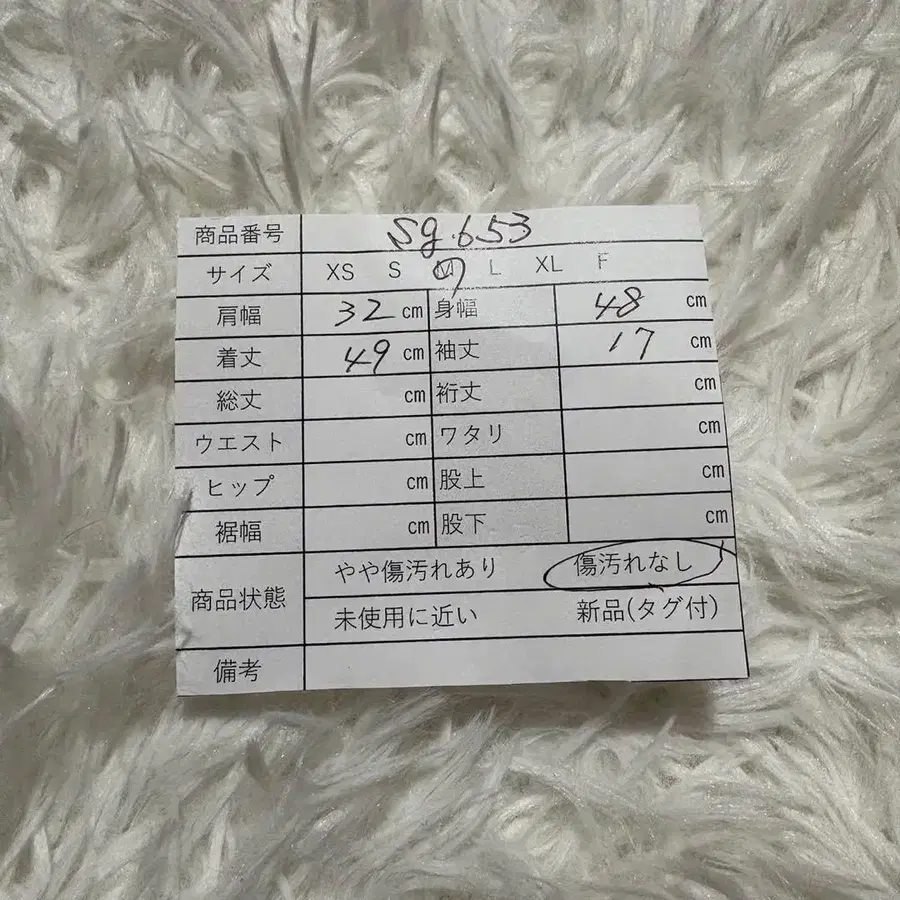 商品番号 sg.653
サイズ XS S M L XL F
肩幅 32 cm 身幅 48 cm
着丈 49 cm 袖丈 17 cm
総丈 cm 裄丈 cm
ウエスト cm ワタリ cm
ヒップ cm 股上 cm
裾幅 cm 股下 cm
商品状態 やや傷汚れあり 傷汚れなし
未使用に近い 新品(タグ付)
備考